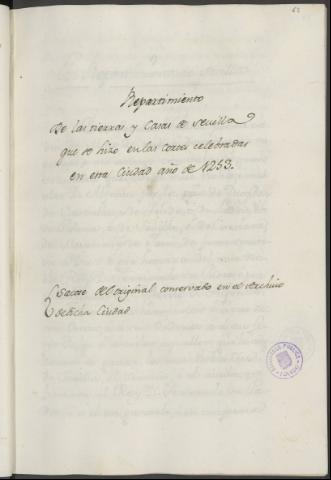 62
Repartimiento
De las tierras y Casas de Sevilla
que se hizo en las cortes celebradas
en esta Ciudad año de 1253.
Sacose del original conservado en el Archivo
de dicha Ciudad
BIBLIOTECA PUBLICA
TOLEDO